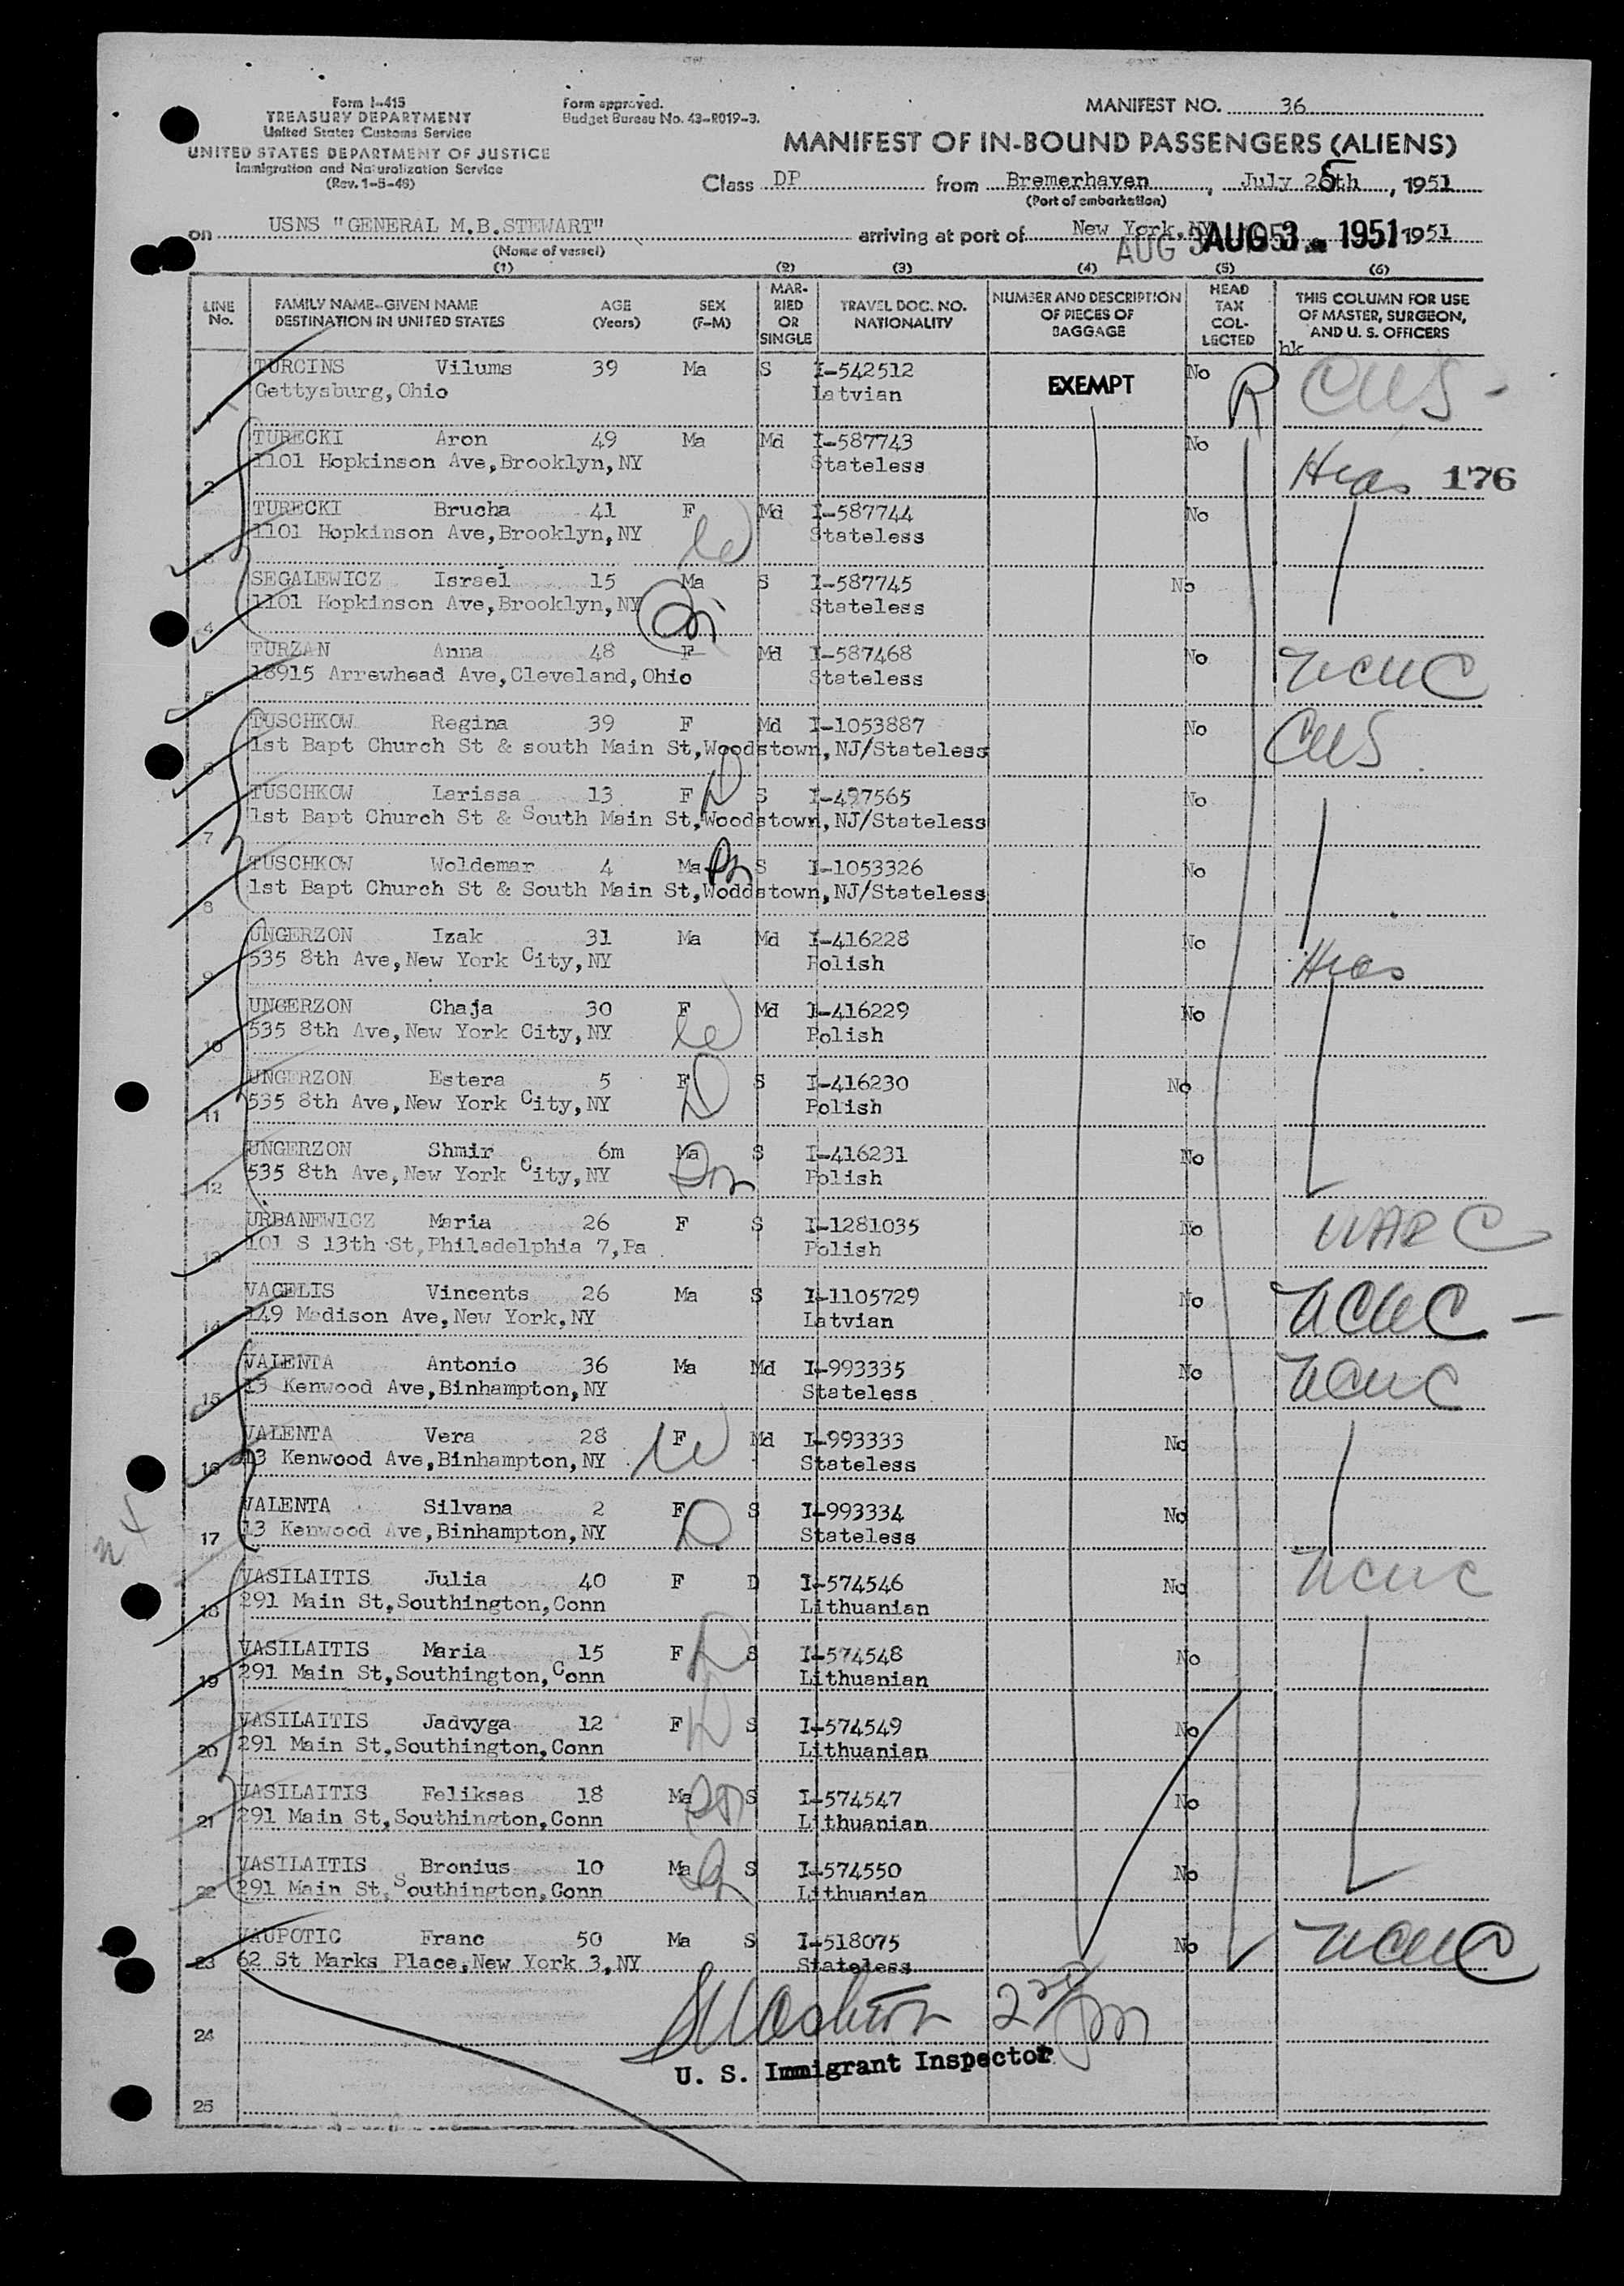 Form I-415
TREASURY DEPARTMENT
United States Customs Service
UNITED STATES DEPARTMENT OF JUSTICE
Immigration and Naturalization Service
(Rev. 1-5-49)
Form approved.
Budget Bureau No. 43-R019-3.
MANIFEST NO. 36
MANIFEST OF IN-BOUND PASSENGERS (ALIENS)
Class DP from Bremerhaven, July 25th, 1951
(Port of embarkation)
on USNS "GENERAL M.B.STEWART" arriving at port of New York,NY AUG 3 - 1951 1951
(Name of vessel)
(1) (2) (3) (4) (5) (6)
LINE No. FAMILY NAME--GIVEN NAME DESTINATION IN UNITED STATES AGE (Years) SEX (F-M) MARRIED OR SINGLE TRAVEL DOC. NO. NATIONALITY NUMBER AND DESCRIPTION OF PIECES OF BAGGAGE HEAD TAX COLLECTED THIS COLUMN FOR USE OF MASTER, SURGEON, AND U. S. OFFICERS
hk
TURCINS Vilums 39 Ma S I-542512 EXEMPT No R CWS -
1 Gettysburg,Ohio Latvian
TURECKI Aron 49 Ma Md I-587743 No Hias 176
2 1101 Hopkinson Ave,Brooklyn,NY Stateless
TURECKI Brucha 41 F W Md I-587744 No
3 1101 Hopkinson Ave,Brooklyn,NY Stateless
SEGALEWICZ Israel 15 Ma S I-587745 No
4 1101 Hopkinson Ave,Brooklyn,NY Stateless
TURZAN Anna 48 F Md I-587468 No NCWC
5 18915 Arrewhead Ave,Cleveland,Ohio Stateless
TUSCHKOW Regina 39 F Md I-1053887 No CWS
6 1st Bapt Church St & south Main St,Woodstown,NJ/Stateless
TUSCHKOW Larissa 13 F D S I-497565 No
7 1st Bapt Church St & South Main St,Woodstown,NJ/Stateless
TUSCHKOW Woldemar 4 Ma S I-1053326 No
8 1st Bapt Church St & South Main St,Woddstown,NJ/Stateless
UNGERZON Izak 31 Ma Md I-416228 No Hias
9 535 8th Ave,New York City,NY Polish
UNGERZON Chaja 30 F W Md I-416229 No
10 535 8th Ave,New York City,NY Polish
UNGERZON Estera 5 F D S I-416230 No
11 535 8th Ave,New York City,NY Polish
UNGERZON Shmir 6m Ma Son S I-416231 No
12 535 8th Ave,New York City,NY Polish
URBANEWICZ Maria 26 F S I-1281035 No
13 101 S 13th St,Philadelphia 7,Pa Polish
VAGELIS Vincents 26 Ma S I-1105729 No NCWC -
14 149 Madison Ave,New York,NY Latvian
VALENTA Antonio 36 Ma Md I-993335 No NCWC
15 13 Kenwood Ave,Binhampton,NY Stateless
VALENTA Vera 28 F W Md I-993333 No
16 13 Kenwood Ave,Binhampton,NY Stateless
VALENTA Silvana 2 F D S I-993334 No
17 13 Kenwood Ave,Binhampton,NY Stateless
VASILAITIS Julia 40 F D I-574546 No NCWC
18 291 Main St,Southington,Conn Lithuanian
VASILAITIS Maria 15 F D S I-574548 No
19 291 Main St,Southington,Conn Lithuanian
VASILAITIS Jadvyga 12 F D S I-574549 No
20 291 Main St,Southington,Conn Lithuanian
VASILAITIS Feliksas 18 Ma Son S I-574547 No
21 291 Main St,Southington,Conn Lithuanian
VASILAITIS Bronius 10 Ma S I-574550 No
22 291 Main St,Southington,Conn Lithuanian
VAUPOTIC Franc 50 Ma S I-518075 No NCWC
23 62 St Marks Place,New York 3,NY Stateless
24
U. S. Immigrant Inspector
25